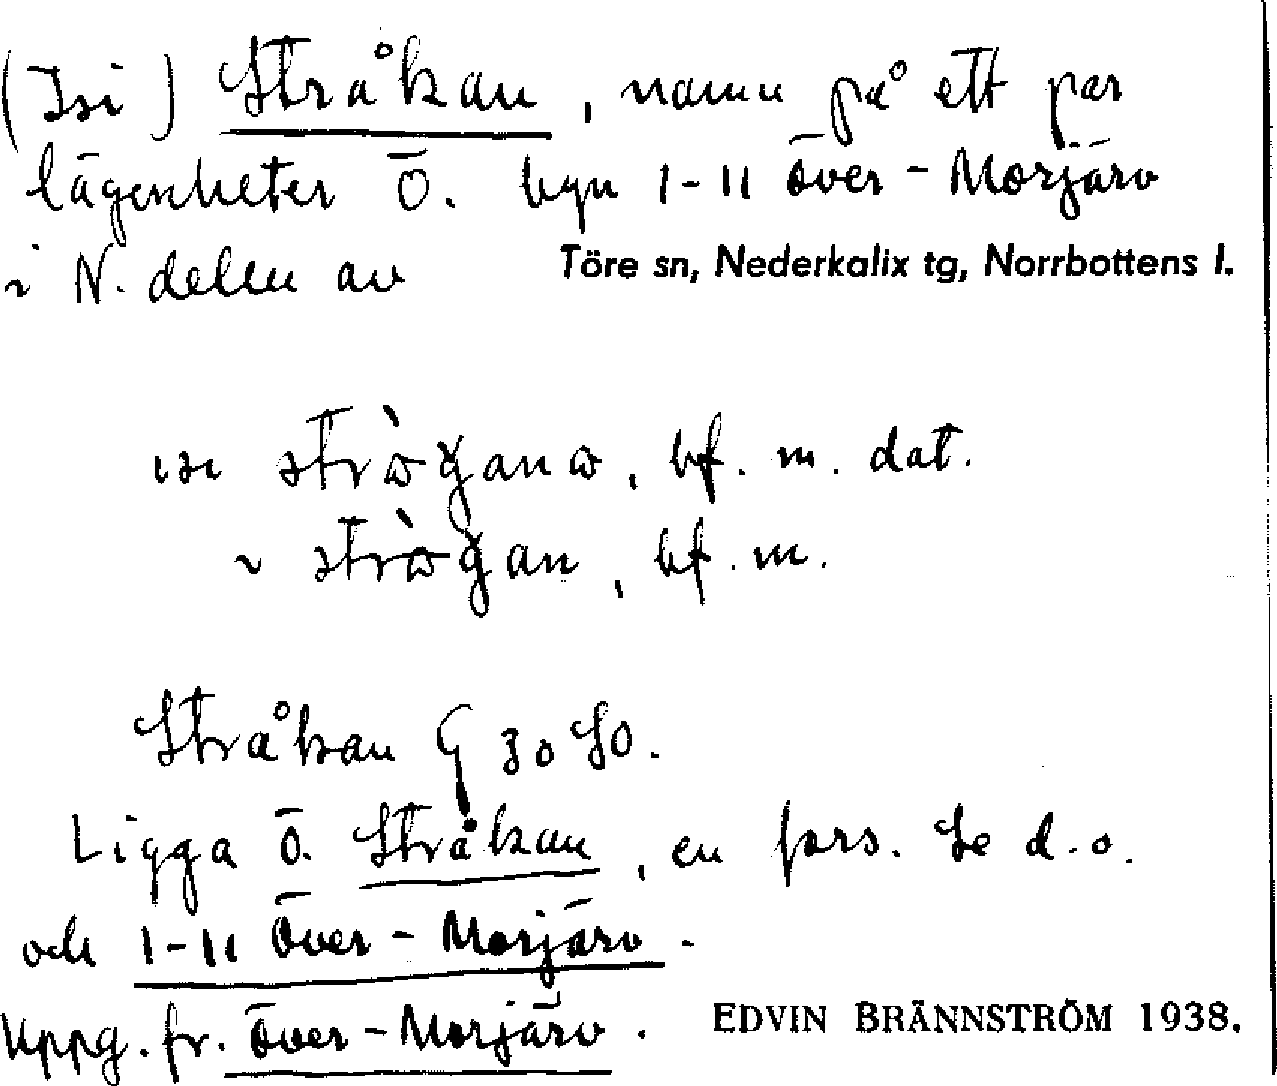 (Isi) Stråkan, namn på ett par
lägenheter Ö. byn 1-11 Över-Morjärv
i N. delen av Töre sn, Nederkalix tg, Norrbottens l.
bf. m. dat.
bf. m.
Stråkan G 30 SO.
Ligga Ö. Stråkan, en fors. Se d.o.
och 1-11 Över-Morjärv.
Uppg. fr. Över-Morjärv. EDVIN BRÄNNSTRÖM 1938.